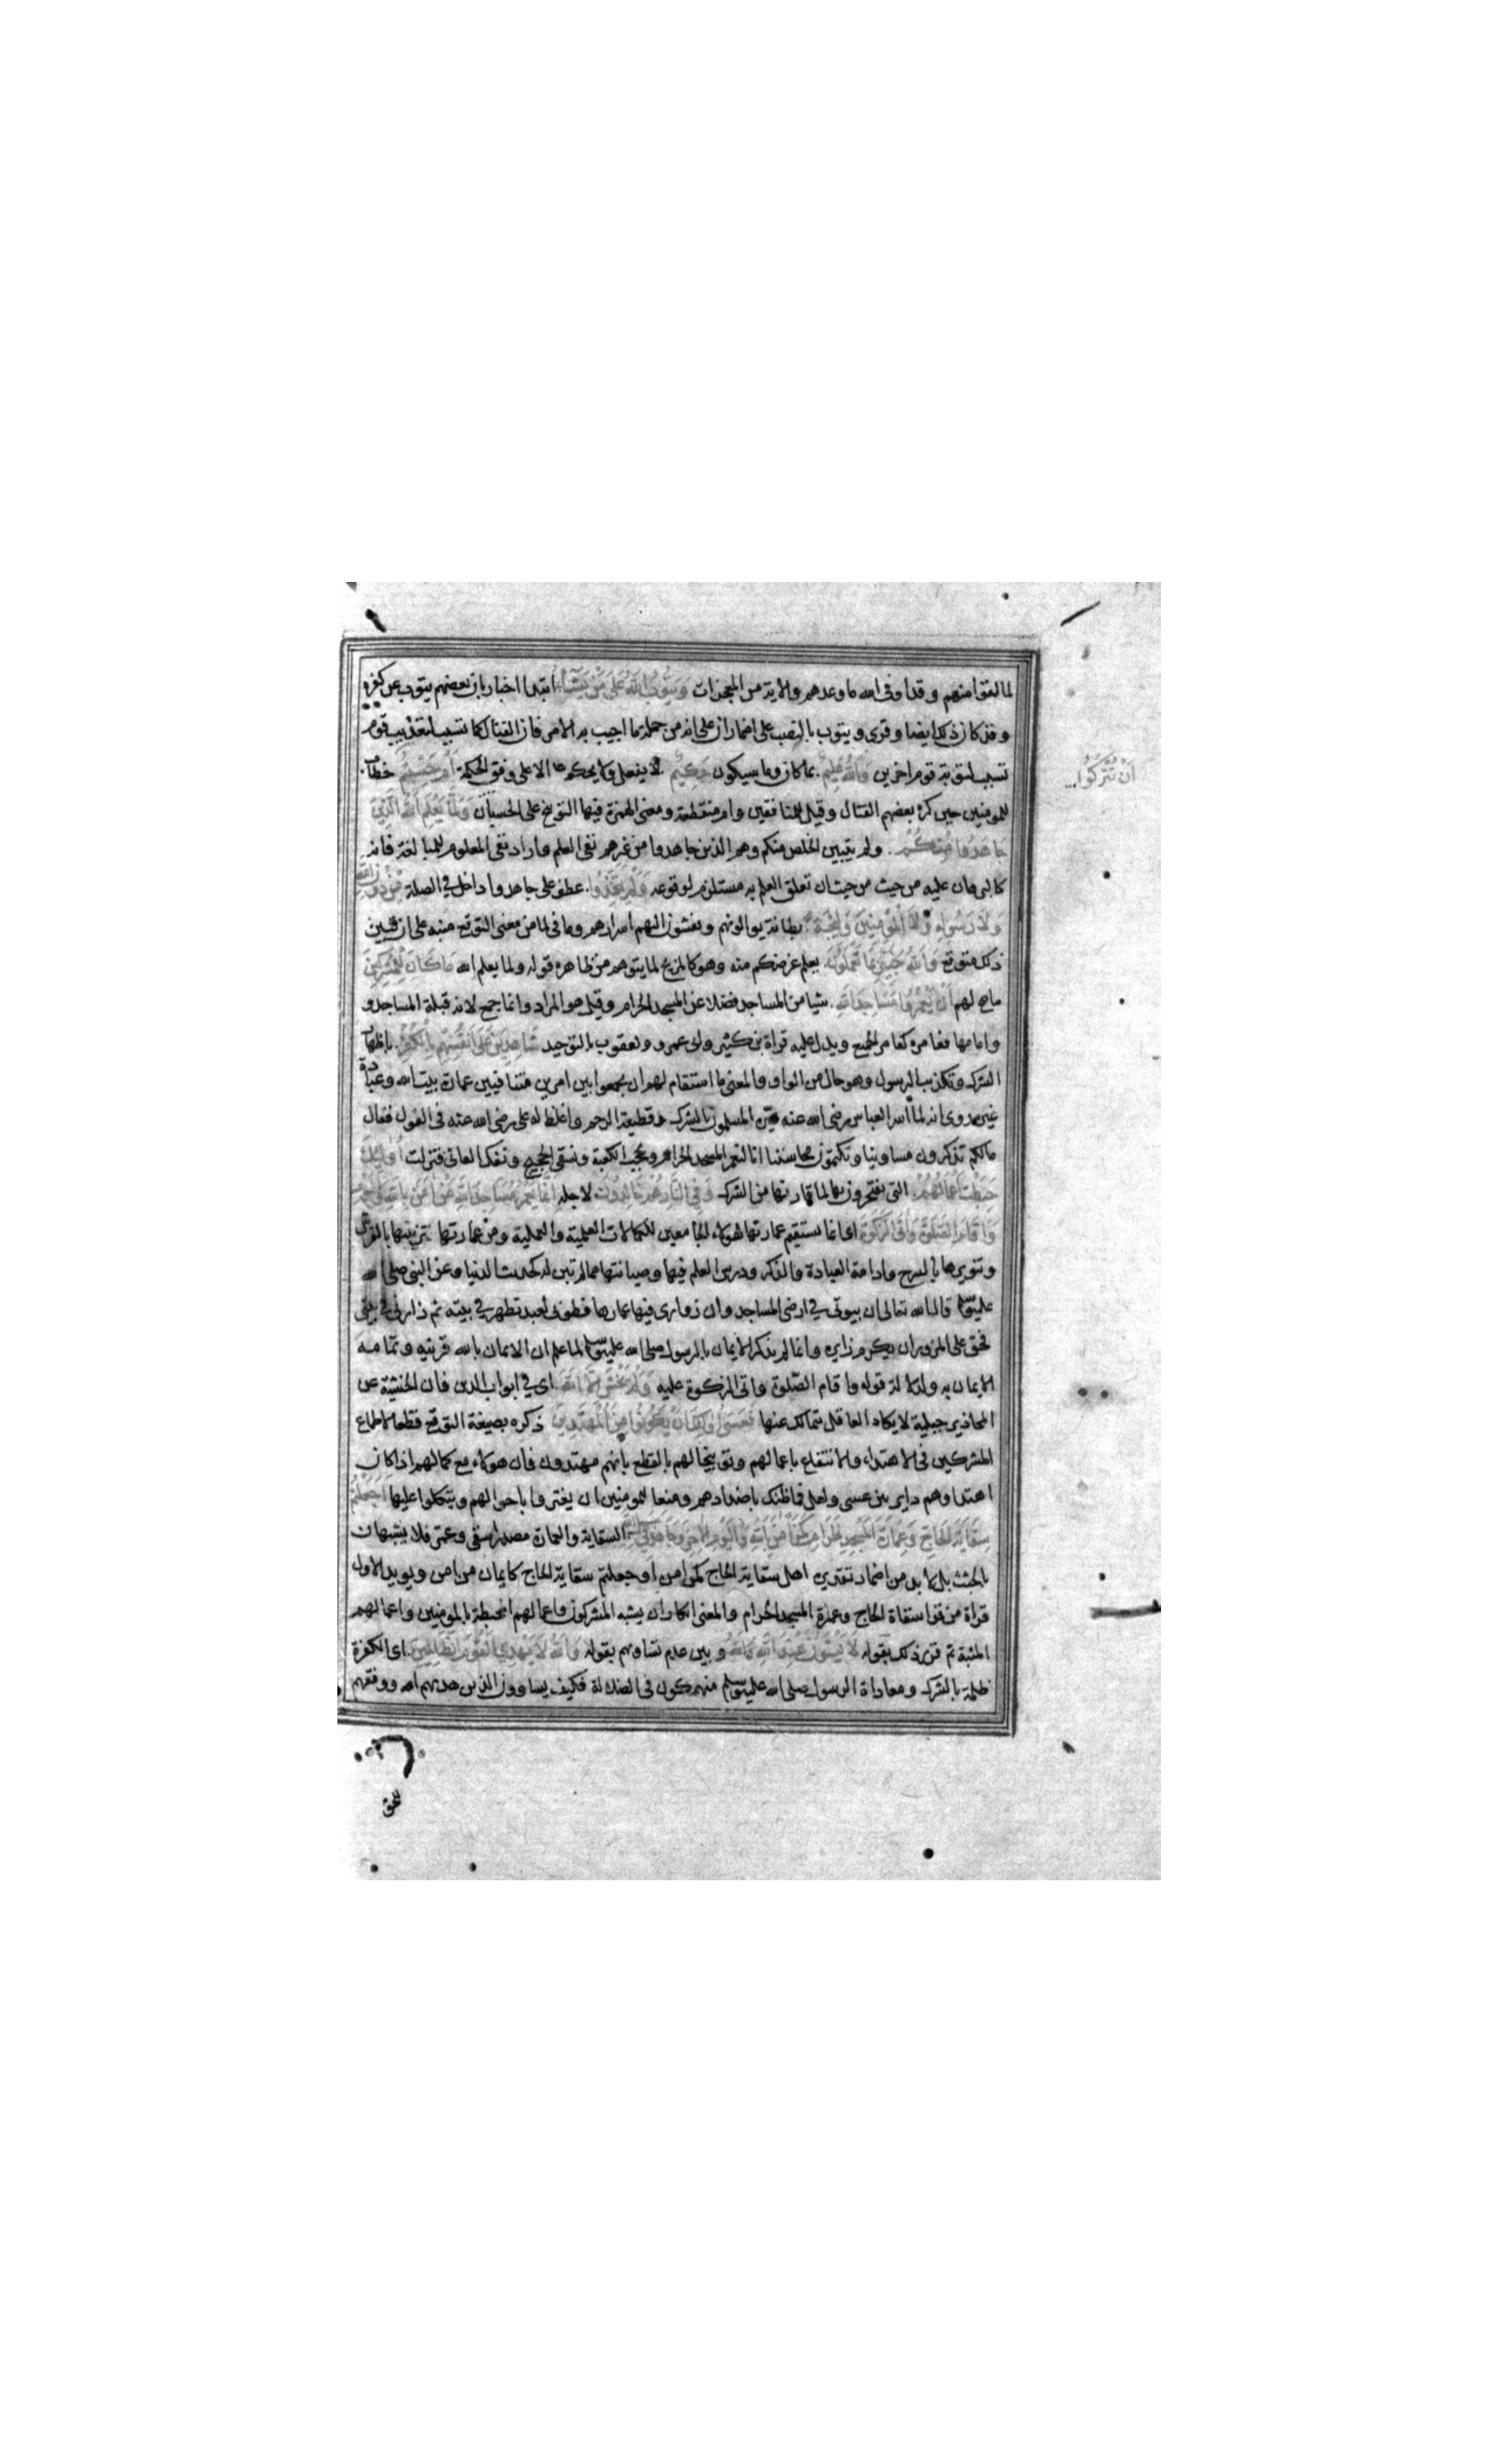 لما لقوا منهم وقد اوفى الله ما وعدهم والاية من المعجزات وَيَتُوبُ اللَّهُ عَلَى مَنْ يَشَاءُ ابتدا اخبار بان بعضهم يتوب عن كفره
وقد كان ذلك ايضا وقرى ويتوب بالنصب على اضمار ان على انه من جملة ما اجيب به الامر فان القتال كما تسبب لتعذيب قوم
تسبب لتوبة قوم اخرين وَاللَّهُ عَلِيمٌ بما كان وما سيكون حَكِيمٌ لا يفعل ولا يحكم الا على وفق الحكمة أَمْ حَسِبْتُمْ خطاب
أَنْ تُتْرَكُوا
للمومنين حين كره بعضهم القتال وقيل للمنافقين وام منقطعة ومعنى الهمزة فيها التوبيخ على الحسبان وَلَمَّا يَعْلَمِ اللَّهُ الَّذِينَ
جَاهَدُوا مِنْكُمْ ولم يتبين الخلص منكم وهم الذين جاهدوا من غيرهم نفى العلم واراد نفى المعلوم للمبالغة فانه
كالبرهان عليه من حيث من حيث ان تعلق العلم به مستلزم لوقوعه وَلَمْ يَتَّخِذُوا عطف على جاهدوا داخل في الصلة مِنْ دُونِ اللَّهِ
وَلَا رَسُولِهِ وَلَا الْمُؤْمِنِينَ وَلِيجَةً بطانة يوالونهم ويفشون اليهم اسرارهم وما في لما من معنى التوقع منبه على ان تبين
ذلك متوقع وَاللَّهُ خَبِيرٌ بِمَا تَعْمَلُونَ يعلم غرضكم منه وهو كالمزيح لما يتوهم من ظاهره قوله ولما يعلم الله مَا كَانَ لِلْمُشْرِكِينَ
ما صح لهم أَنْ يَعْمُرُوا مَسَاجِدَ اللَّهِ شيا من المساجد فضلا عن المسجد الحرام وقيل هو المراد وانما جمع لانه قبلة المساجد و
وامامها فعامره كعامر الجميع ويدل عليه قراة بن كثير وابى عمرو ويعقوب بالتوحيد شَاهِدِينَ عَلَى أَنْفُسِهِمْ بِالْكُفْرِ باظهار
الشرك وتكذيب الرسول وهو حال من الواو والمعنى ما استقام لهم ان يجمعوا بين امرين متنافيين عمارة بيت الله وعبادة
غيره روى انه لما اسر العباس رضى الله عنه عيره المسلمون بالشرك وقطيعة الرحم واغلظ له على رضى الله عنه فى القول فقال
مالكم تذكرون مساوينا وتكتمون محاسننا انا لنعمر المسجد الحرام ونحجب الكعبة ونسقى الحجيج ونفك العانى فنزلت أُولَئِكَ
حَبِطَتْ أَعْمَالُهُمْ التى يفتخرون بها لما قارنها من الشرك وَفِي النَّارِ هُمْ خَالِدُونَ لاجله إِنَّمَا يَعْمُرُ مَسَاجِدَ اللَّهِ مَنْ آمَنَ بِاللَّهِ
وَأَقَامَ الصَّلَوةَ وَآتَى الزَّكَوةَ اى انما تستقيم عمارتها لهولاء الجامعين للكمالات العلمية والعملية ومن عمارتها تزيينها بالفرش
وتنويرها بالسرج وادامة العبادة والذكر ودرس العلم فيها وصيانتها عما لم تبن له كحديث الدنيا وعن النبى صلى الله
عليه وسلم قال الله تعالى ان بيوتى في ارضى المساجد وان زوارى فيها عمارها فطوبى لعبد تطهر في بيته ثم زارنى في بيتى
فحق على المزور ان يكرم زايره وانما لم يذكر الايمان بالرسول صلى الله عليه وسلم لما علم ان الايمان بالله قرينه وتمامه
الايمان به ولدلالة قوله واقام الصلوة واتى الزكوة عليه وَلَمْ يَخْشَ إِلَّا اللَّهَ اى في ابواب الدين فان الخشية عن
المحاذير جبلية لا يكاد العاقل يتمالك عنها فَعَسَى أُولَئِكَ أَنْ يَكُونُوا مِنَ الْمُهْتَدِينَ ذكره بصيغة التوقع قطعا لاطماع
المشركين فى الاهتداء والانتفاع باعمالهم وتوبيخا لهم بالقطع بانهم مهتدون فان هولاء مع كمالهم اذا كان
اهتداوهم داير بين عسى ولعل فما ظنك باضدادهم ومنعا للمومنين ان يغتروا باحوالهم ويتكلوا عليها أَجَعَلْتُمْ
سِقَايَةَ الْحَاجِّ وَعِمَارَةَ الْمَسْجِدِ الْحَرَامِ كَمَنْ آمَنَ بِاللَّهِ وَالْيَوْمِ الْآخِرِ وَجَاهَدَ فِي سَبِيلِ اللَّهِ السقاية والعمارة مصدرا سقى وعمر فلا يشبهان
بالجثث بل لا بد من اضمار تقديره اهل سقاية الحاج كمن امن او جعلتم سقاية الحاج كايمان من امن ويويد الاول
قراة من قرا سقاة الحاج وعمرة المسجد الحرام والمعنى انكار ان يشبه المشركون واعمالهم المحبطة بالمومنين واعمالهم
المثبتة ثم قرر ذلك بقوله لَا يَسْتَوُونَ عِنْدَ اللَّهِ وبين عدم تساويهم بقوله وَاللَّهُ لَا يَهْدِي الْقَوْمَ الظَّالِمِينَ اى الكفرة
ظلمة بالشرك ومعاداة الرسول صلى الله عليه وسلم منهمكون فى الضلالة فكيف يساوون الذين هديهم الله ووفقهم
للحق